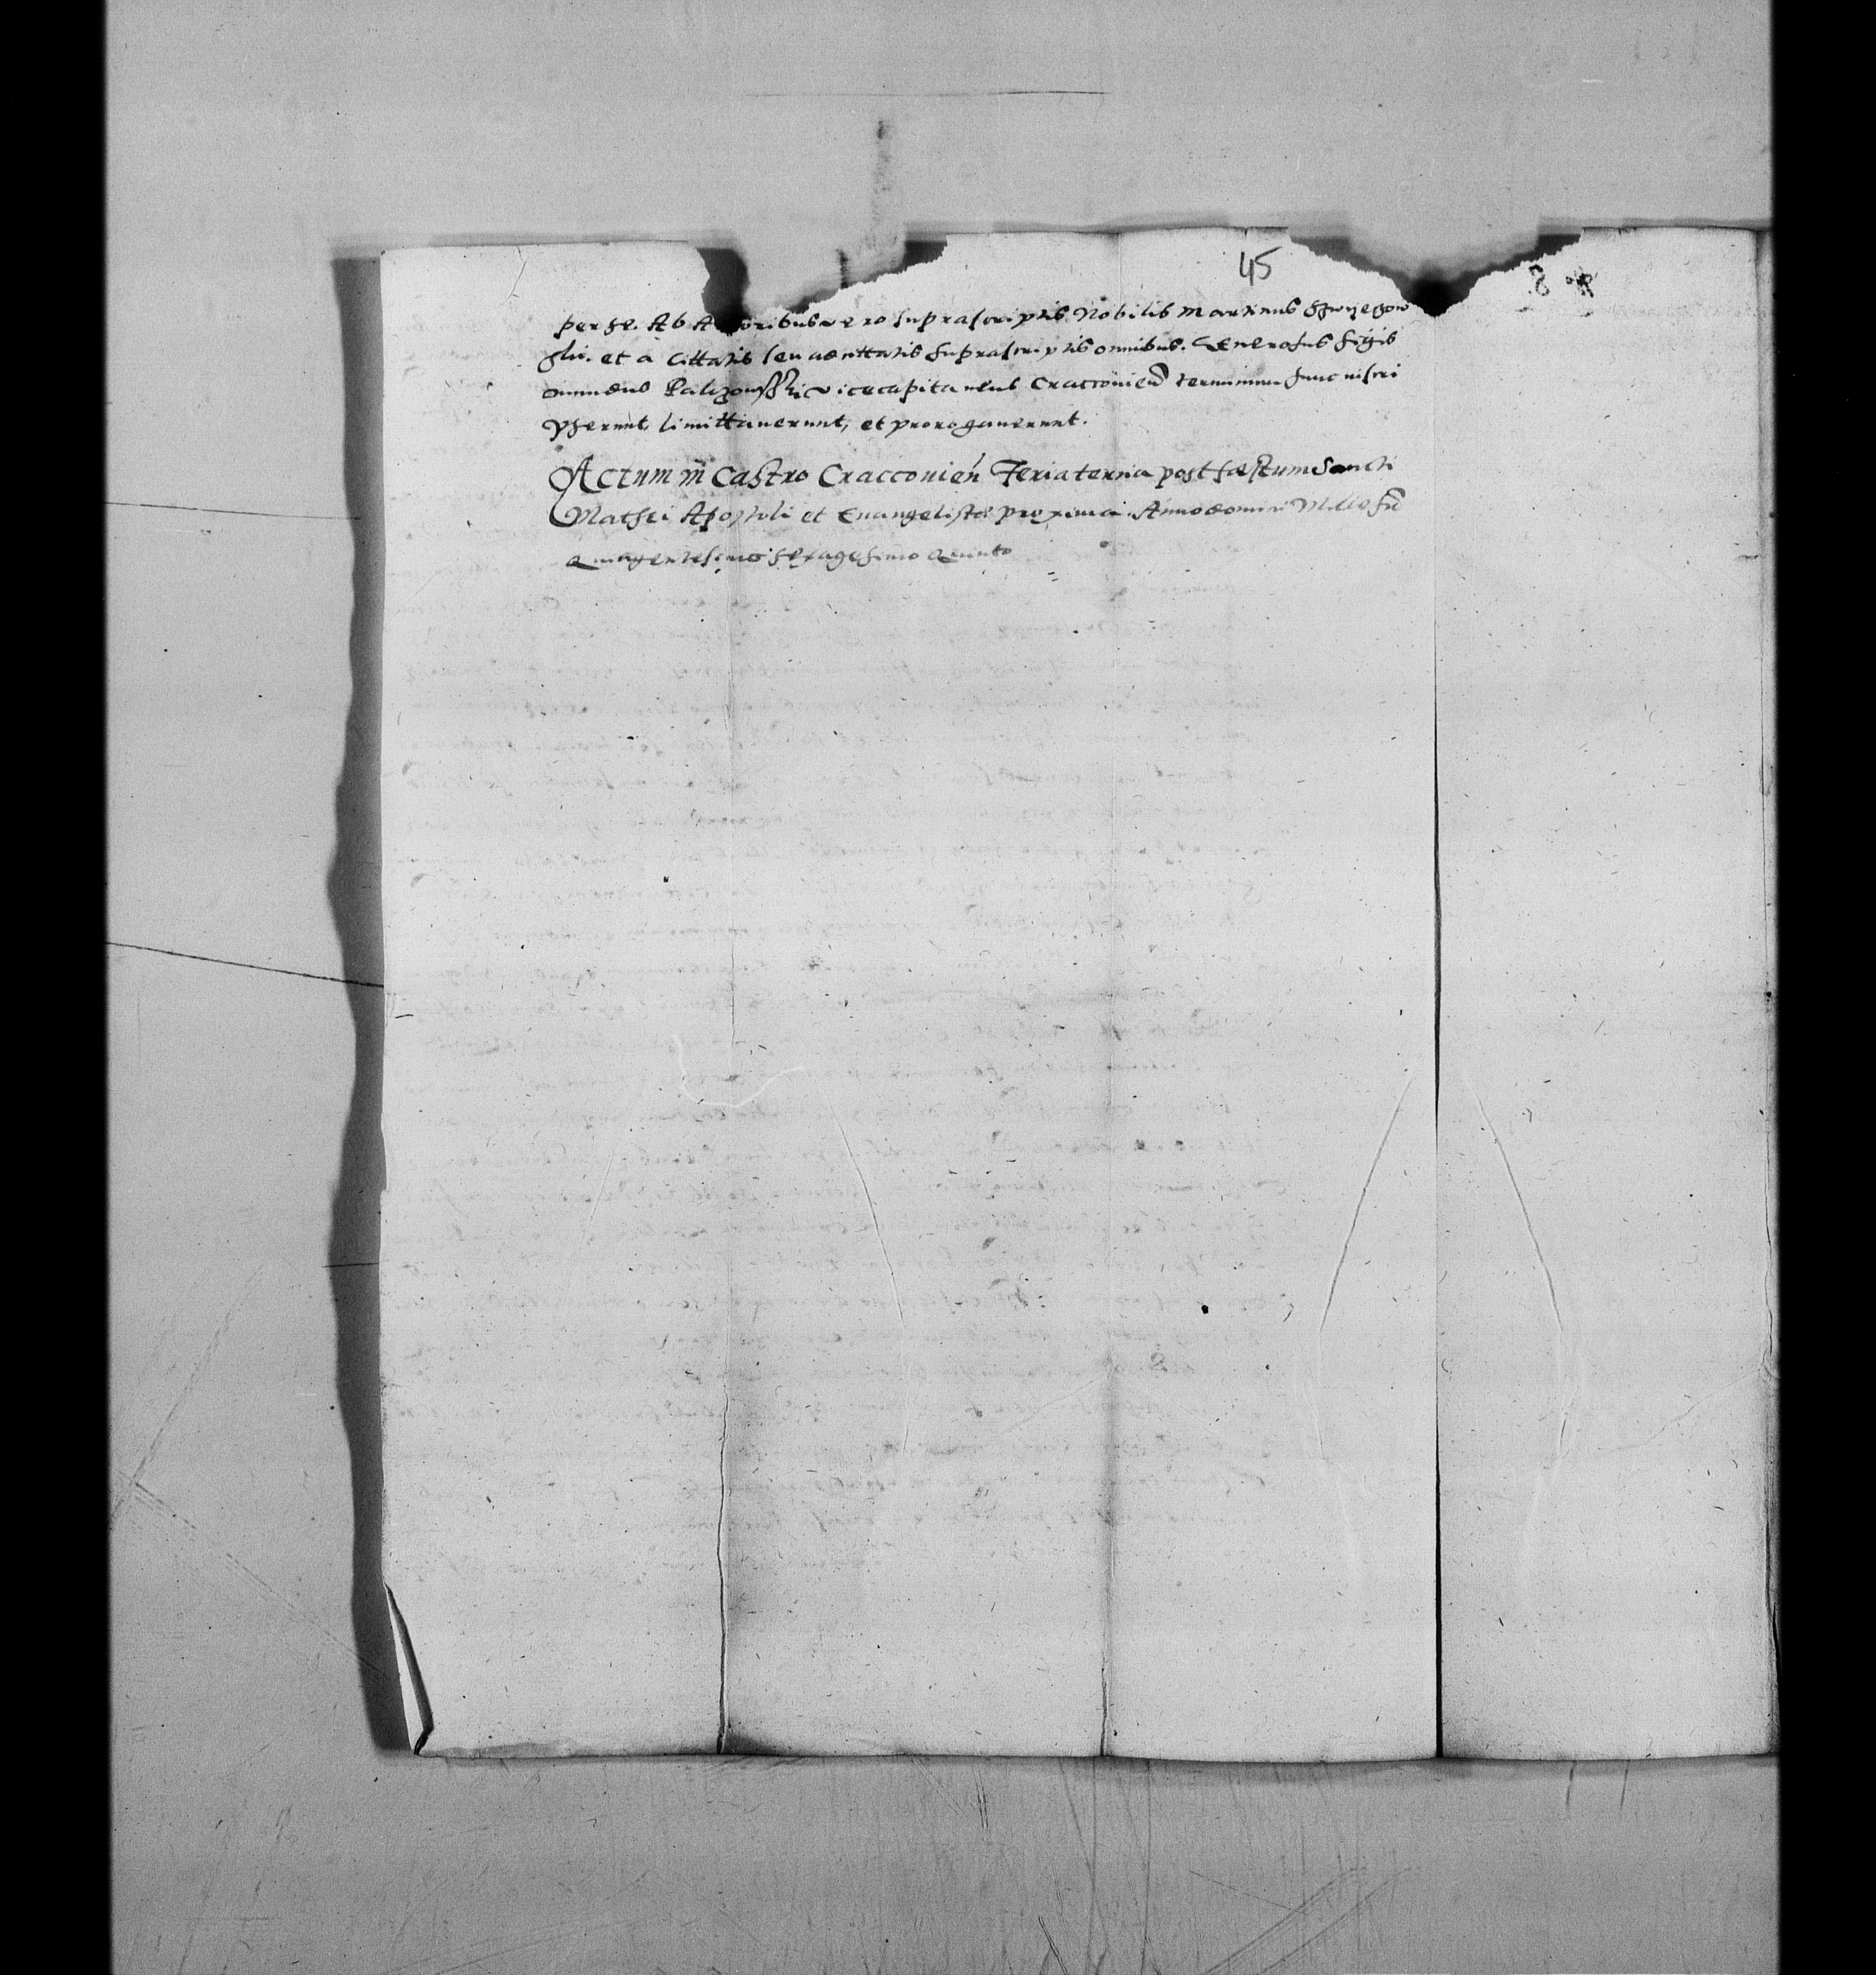 45
per se. Ab Actoribus vero suprascriptis Nobilis Martinus
et a Cittatis seu acittatis suprascriptis omnibus. Generosus Sigis
mundus Palczowski vicecapitaneus Cracconien terminum hunc
limittaverunt, et prorogaverunt.
Actum in Castro Cracconien Feria terna post Festum Sancti
Mathei Apostoli et Evangelistæ proxima. Anno domini Millesi
Quingentesimo Sexagesimo Quinto